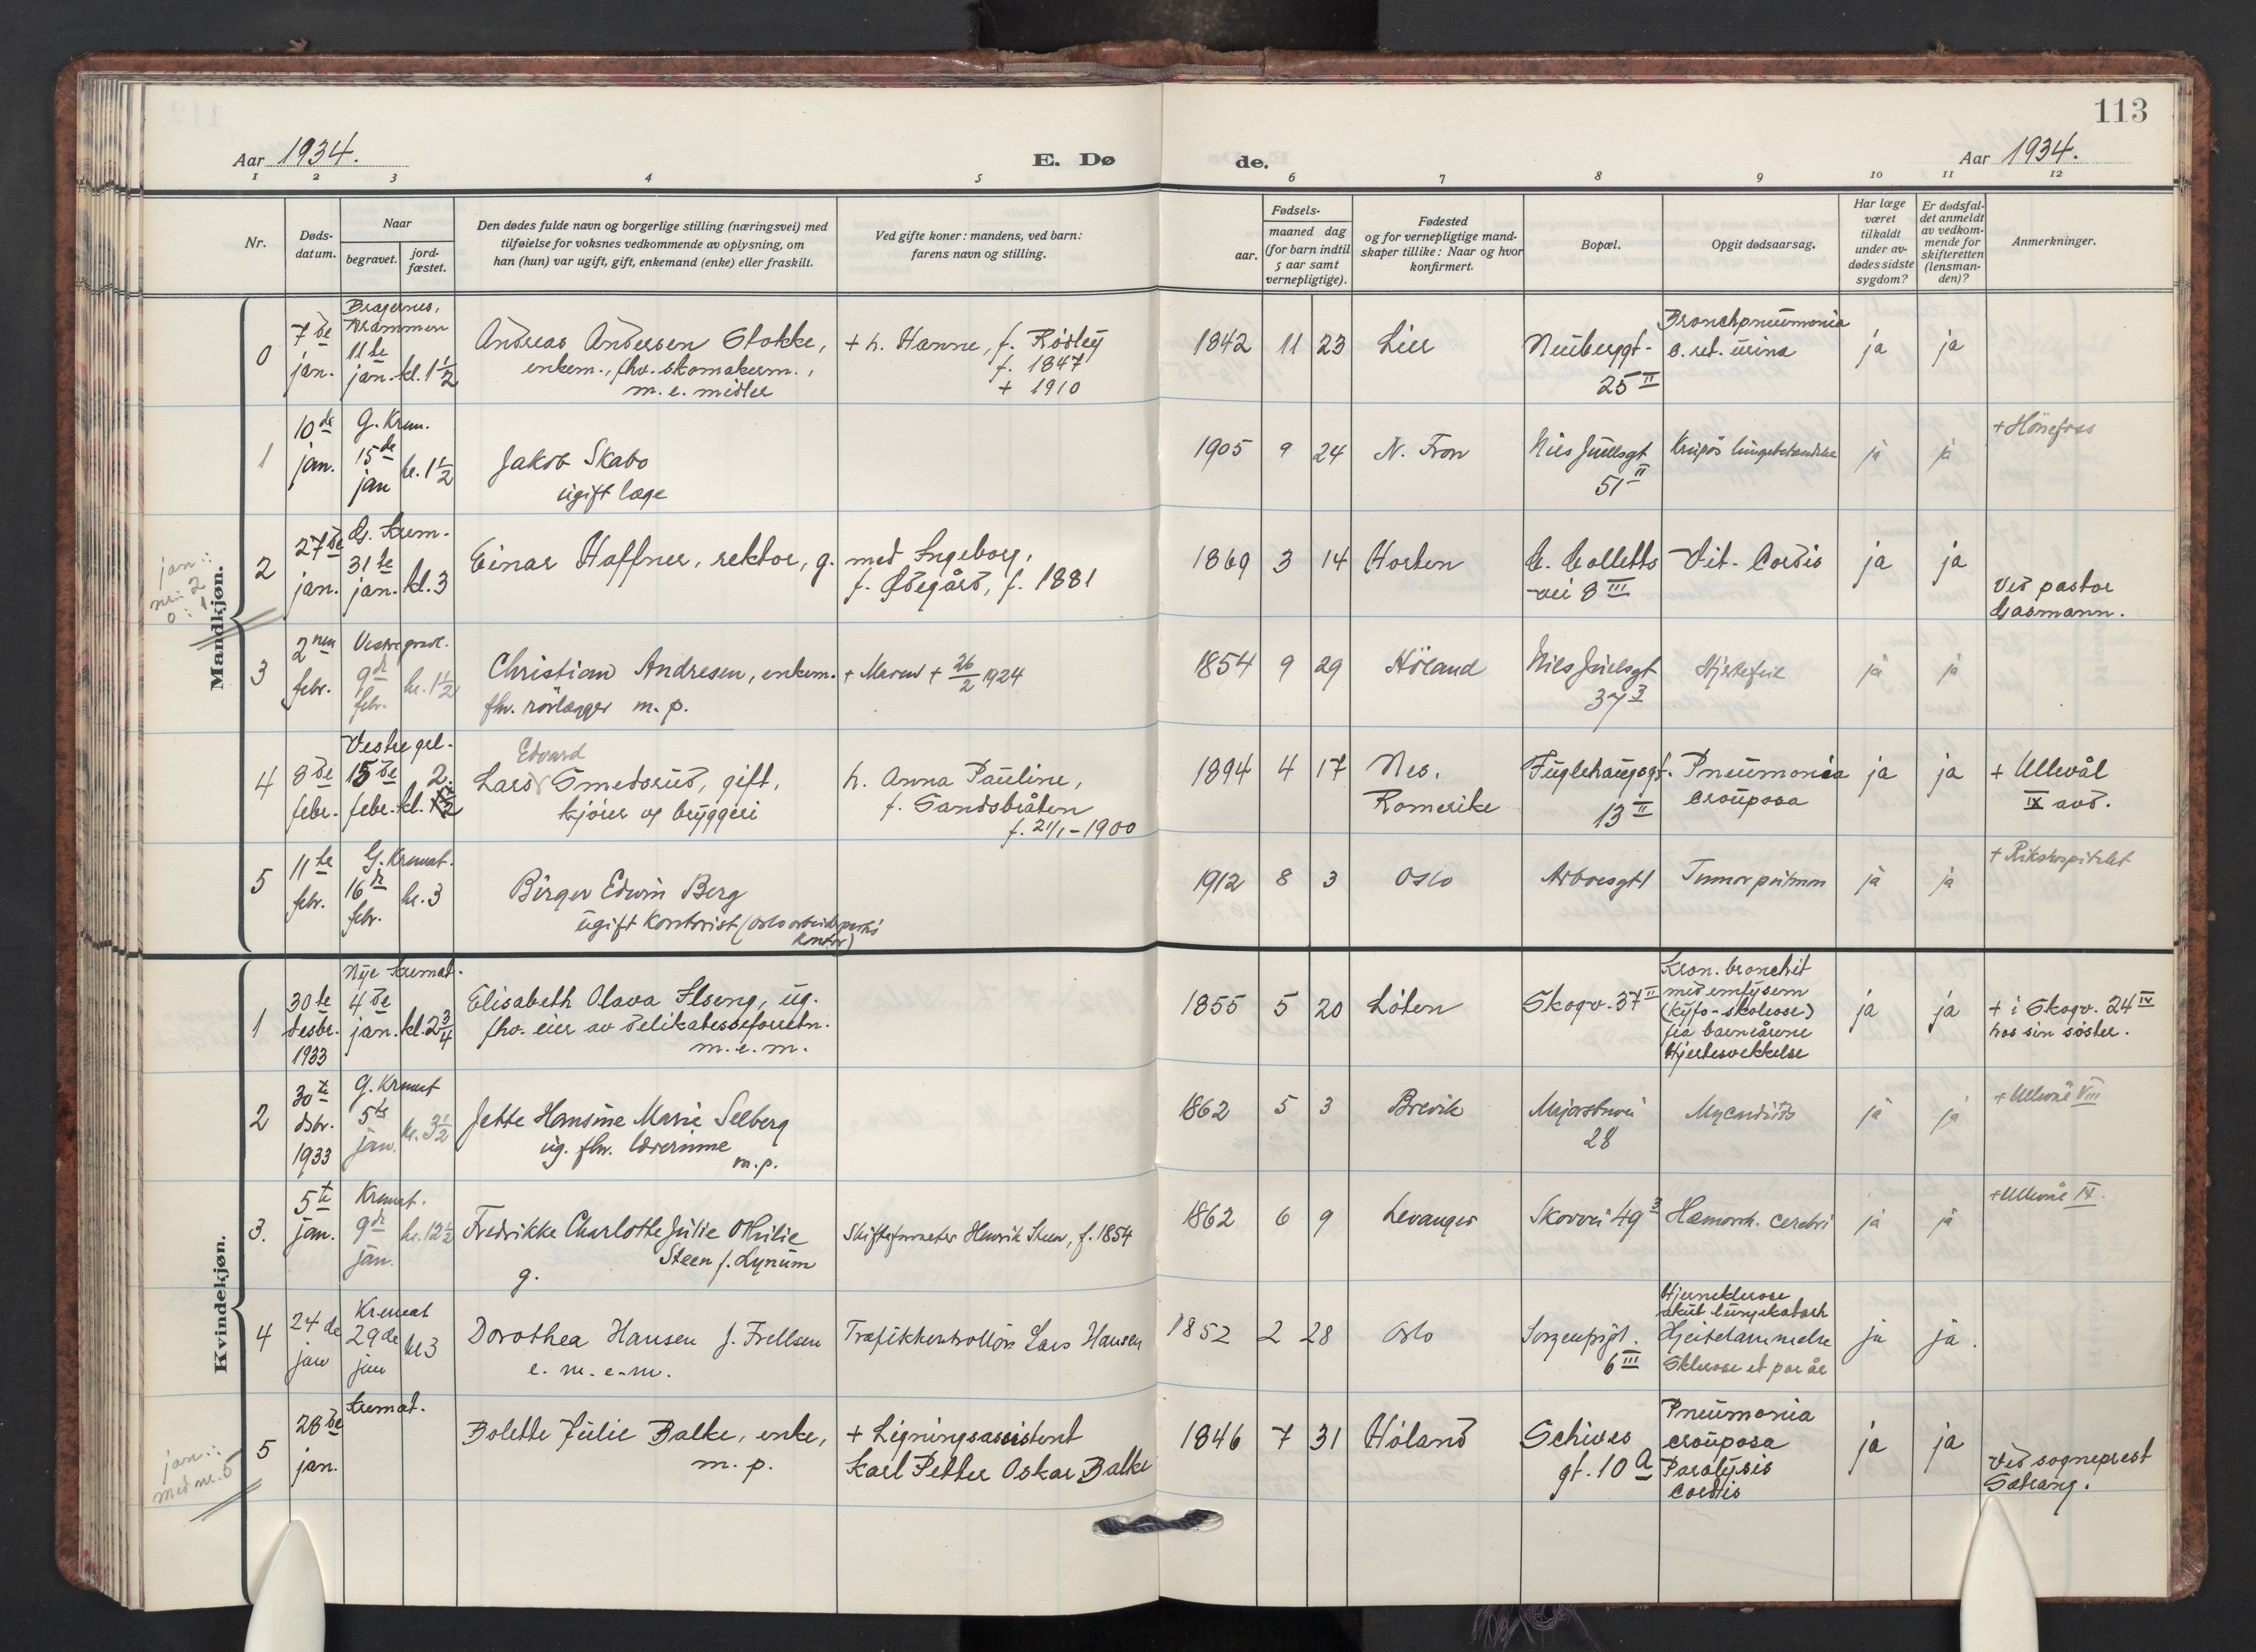 113
Aar 1934.
E. Dø
de.
Aar 1934.
1 2 3 4 5 6 7 8 9 10 11 12
Nr.
Døds-
datum.
Naar
begravet.
jord-
fæstet.
Den dødes fulde navn og borgerlige stilling (næringsvei) med
tilføielse for voksnes vedkommende av oplysning, om
han (hun) var ugift, gift, enkemand (enke) eller fraskilt.
Ved gifte koner: mandens, ved barn:
farens navn og stilling.
Fødsels-
aar.
maaned dag
(for barn indtil
5 aar samt
vernepligtige).
Fødested
og for vernepligtige mand-
skaper tillike: Naar og hvor
konfirmert.
Bopæl.
Opgit dødsaarsag.
Har læge
været
tilkaldt
under av-
dødes sidste
sygdom?
Er dødsfal-
det anmeldt
av vedkom-
mende for
skifteretten
(lensman-
den)?
Anmerkninger.
Mandkjøn.
jan.:
nr: 2
0: 1
0
7de
jan.
Bragernes,
Drammen
11te
jan. kl. 1 1/2
Andreas Andersen Stokke,
enkem., fhv. skomakerm.,
m. e. midler
+ h. Hanne, f. Rødley
f. 1847
+ 1910
1842 11 23
Lier
Neuberggt.
25 II
Bronchpneumonia
c. ret. urina
ja
ja
1
10de
jan.
G. Krem.
15de
jan
kl. 1 1/2
Jakob Skabo
ugift læge
1905 9 24
N. Fron
Nils Juelsgt
51 II
Krupøs lungebetændelse
ja
ja
+ Hønefoss
2
27de
jan.
G. Krem.
31te
jan. kl. 3
Einar Haffner, rektor, g.
med Ingeborg,
f. Ødegård, f. 1881
1869 3 14
Horten
C. Colletts
-vei 8 III
Vit. Cordis
ja
ja
Ved pastor
Gasmann.
3
2nen
febr.
Vestre gravl.
9de
febr.
kl. 1 1/2
Christian Andresen, enkem.
fhv. rørlægger m. p.
+ Maren + 26/2 1924
1854 9 29
Høland
Nils Juelsgt
37 3
Hjertefeil
ja
ja
4
8de
febr.
Vestre grl.
15de
febr. kl. 2.
Edvard
Lars Smedsrud, gift,
kjører og bryggeri
h. Anna Pauline,
f. Sandsbråten
f. 21/1-1900
1894 4 17
Nes.
Romerike
Fuglehauggt.
13 II
Pneumonia
crouposa
ja
ja
+ Ullevål
IX avd.
5
11te
febr.
G. Kremat.
16de
febr.
kl. 3
Birger Edwin Berg
ugift kontorist (Oslo arbeiderpartis
kontor)
1912 8 3
Oslo
Arboesgt 1
Tumor pulmon
ja
ja
+ Rikshospitalet
Kvindekjøn.
1
30te
desbr.
1933
Nye kremat.
4de
jan. kl. 2 3/4
Elisabeth Olava Ilseng, ug.
fhv. eier av delikatesseforretn.
m. e. m.
1855 5 20
Løten
Skogv. 37 II
Kron. bronchit
med emfysem
(kyfo-skoliose)
fra barneårene
Hjertesvekkelse
ja
ja
+ i Skogv. 24 IV
hos sin søster.
2
30te
dsbr.
1933
G. Kremat
5te
jan.
kl. 3 1/2
Jette Hansine Marie Selberg
ug. fhv. lærerinne
m. p.
1862 5 3
Brevik
Majorstuvei
28
Myocarditis
ja
ja
+ Ullevål VIII
3.
5te
jan.
Kremat.
9de
jan.
kl. 12 1/2
Fredrikke Charlotte Julie Othilie
Steen f. Lynum
g.
Skifteforvalter Henrik Steen, f. 1854
1862 6 9
Levanger
Skovvei 49 3
Hæmorrh. cerebri
ja
ja
+ Ullevål IX.
4
24de
jan
Kremat
29de
jan
kl 3
Dorothea Hansen f. Frellsen
e. m. e. m.
Trafikkontrollør Lars Hansen
1852 2 28
Oslo
Sorgenfrigt.
6 III
Hjerneklerose
akut lungekatarh
Hjertelammelse
Sklerose et par år
ja
ja.
jan.:
med nr. 5
5
28de
jan.
kremat.
Bolette Julie Balke, enke,
m. p.
+ Ligningsassistent
Karl Petter Oskar Balke
1846 7 31
Høland
Schives
gt. 10 a
Pneumonia
crouposa
Paralysis
cordis
ja
ja
Ved sogneprest
Sætrang.